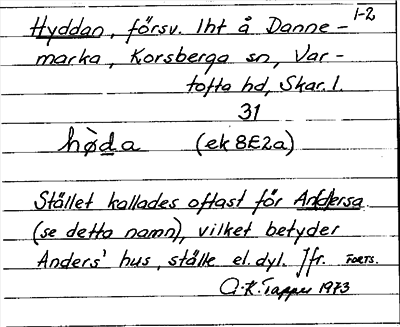 1-2
Hyddan, försv. lht å Danne-
marka, Korsberga sn, Var-
tofta hd, Skar. l.
31
hø̀da (ek 8E2a)
Stället kallades oftast för Andersa
(se detta namn), vilket betyder
Anders' hus, ställe el. dyl. Jfr. FORTS.
A.K. Tapper 1973